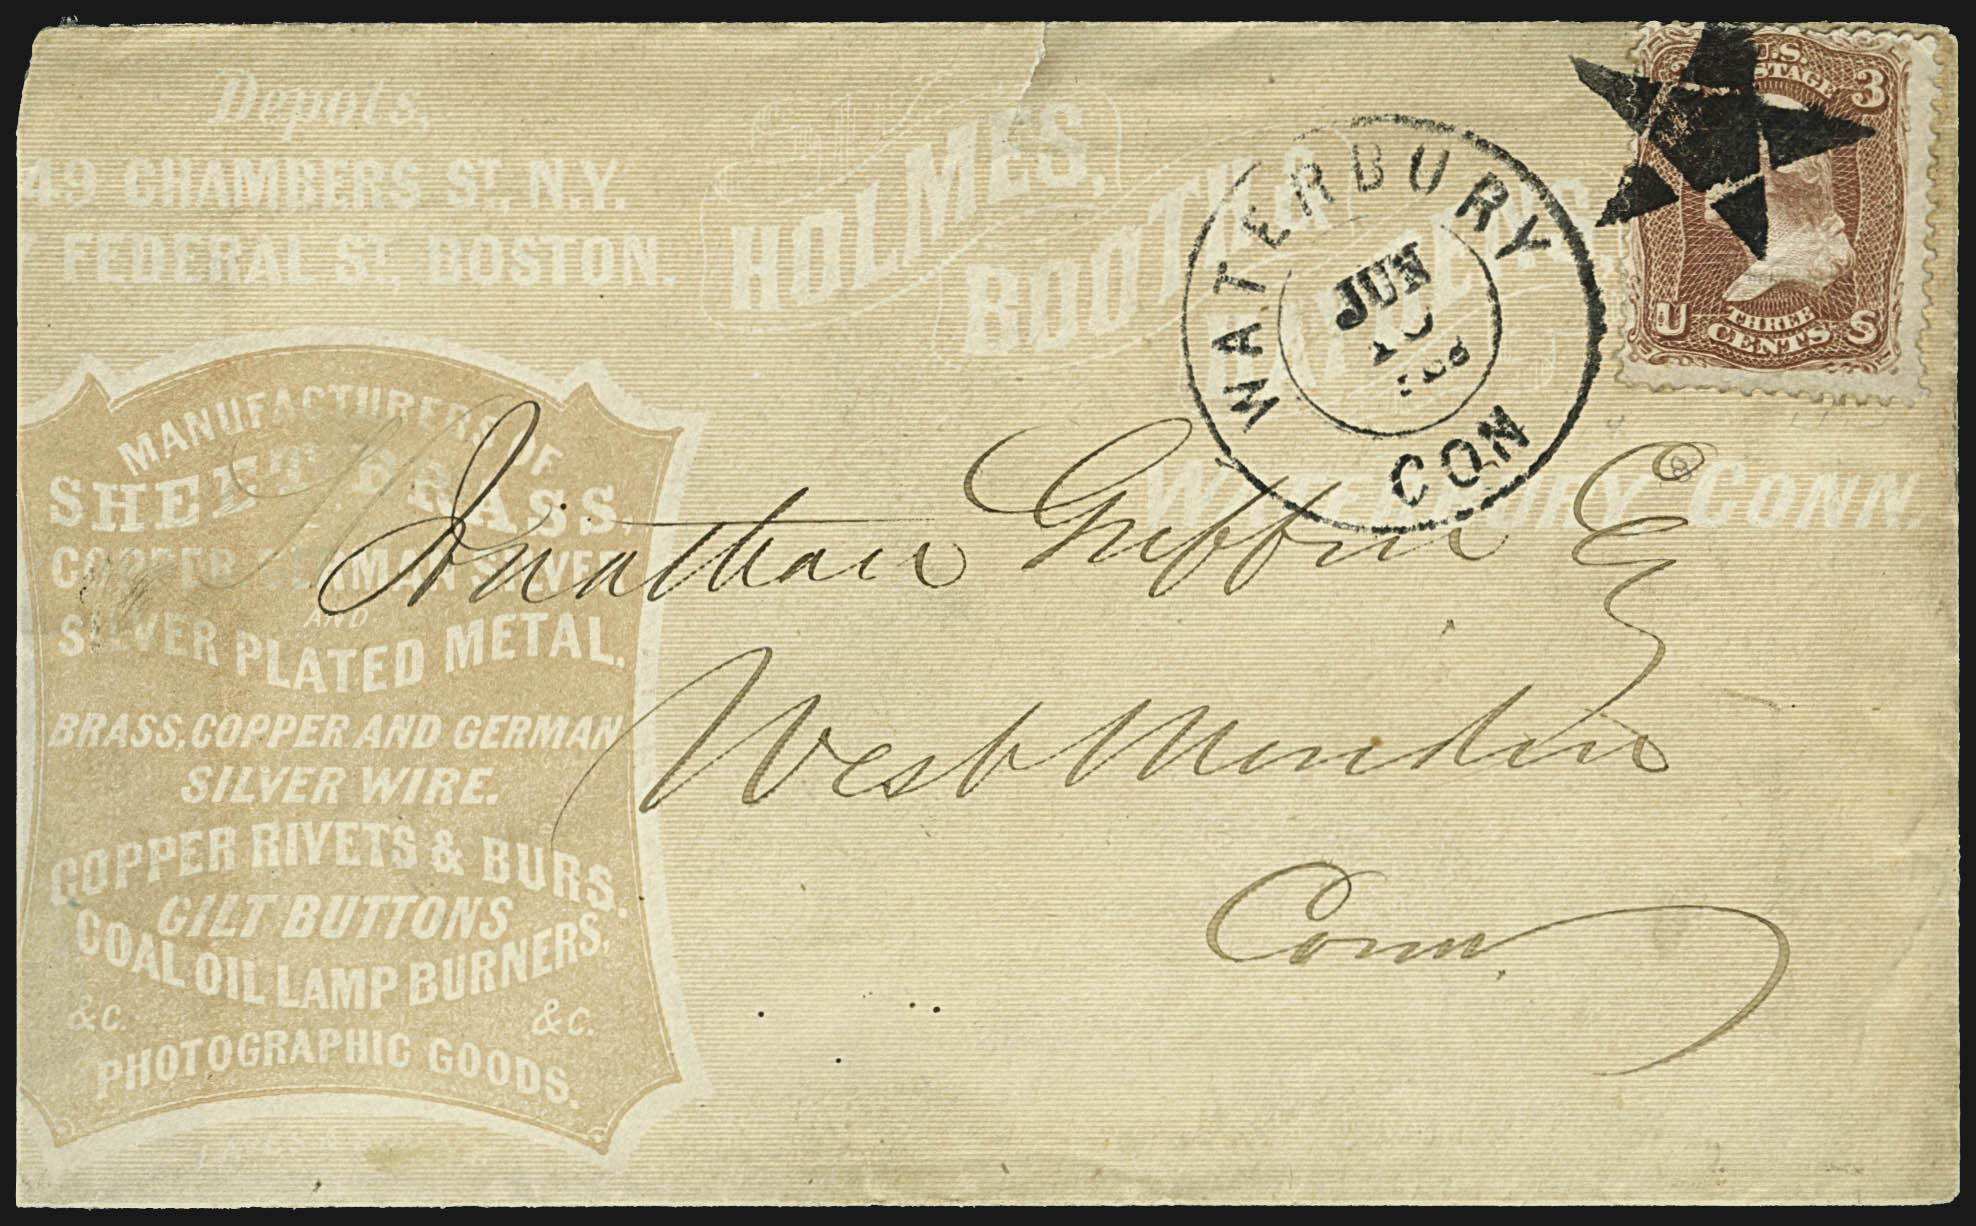 Depots,
49 CHAMBERS ST., N.Y.
FEDERAL ST., BOSTON.
HOLMES,
BOOTH &
HAYDENS,
WATERBURY, CONN.
WATERBURY
JUN
CON
U.S.
POSTAGE
3
U S
THREE
CENTS
MANUFACTURERS OF
SHEET BRASS,
COPPER GERMAN SILVER
AND
SILVER PLATED METAL.
BRASS, COPPER AND GERMAN
SILVER WIRE.
COPPER RIVETS & BURS.
GILT BUTTONS
COAL OIL LAMP BURNERS,
&C. &C.
PHOTOGRAPHIC GOODS.
Jonathan Griffin Esq
West Meriden
Conn